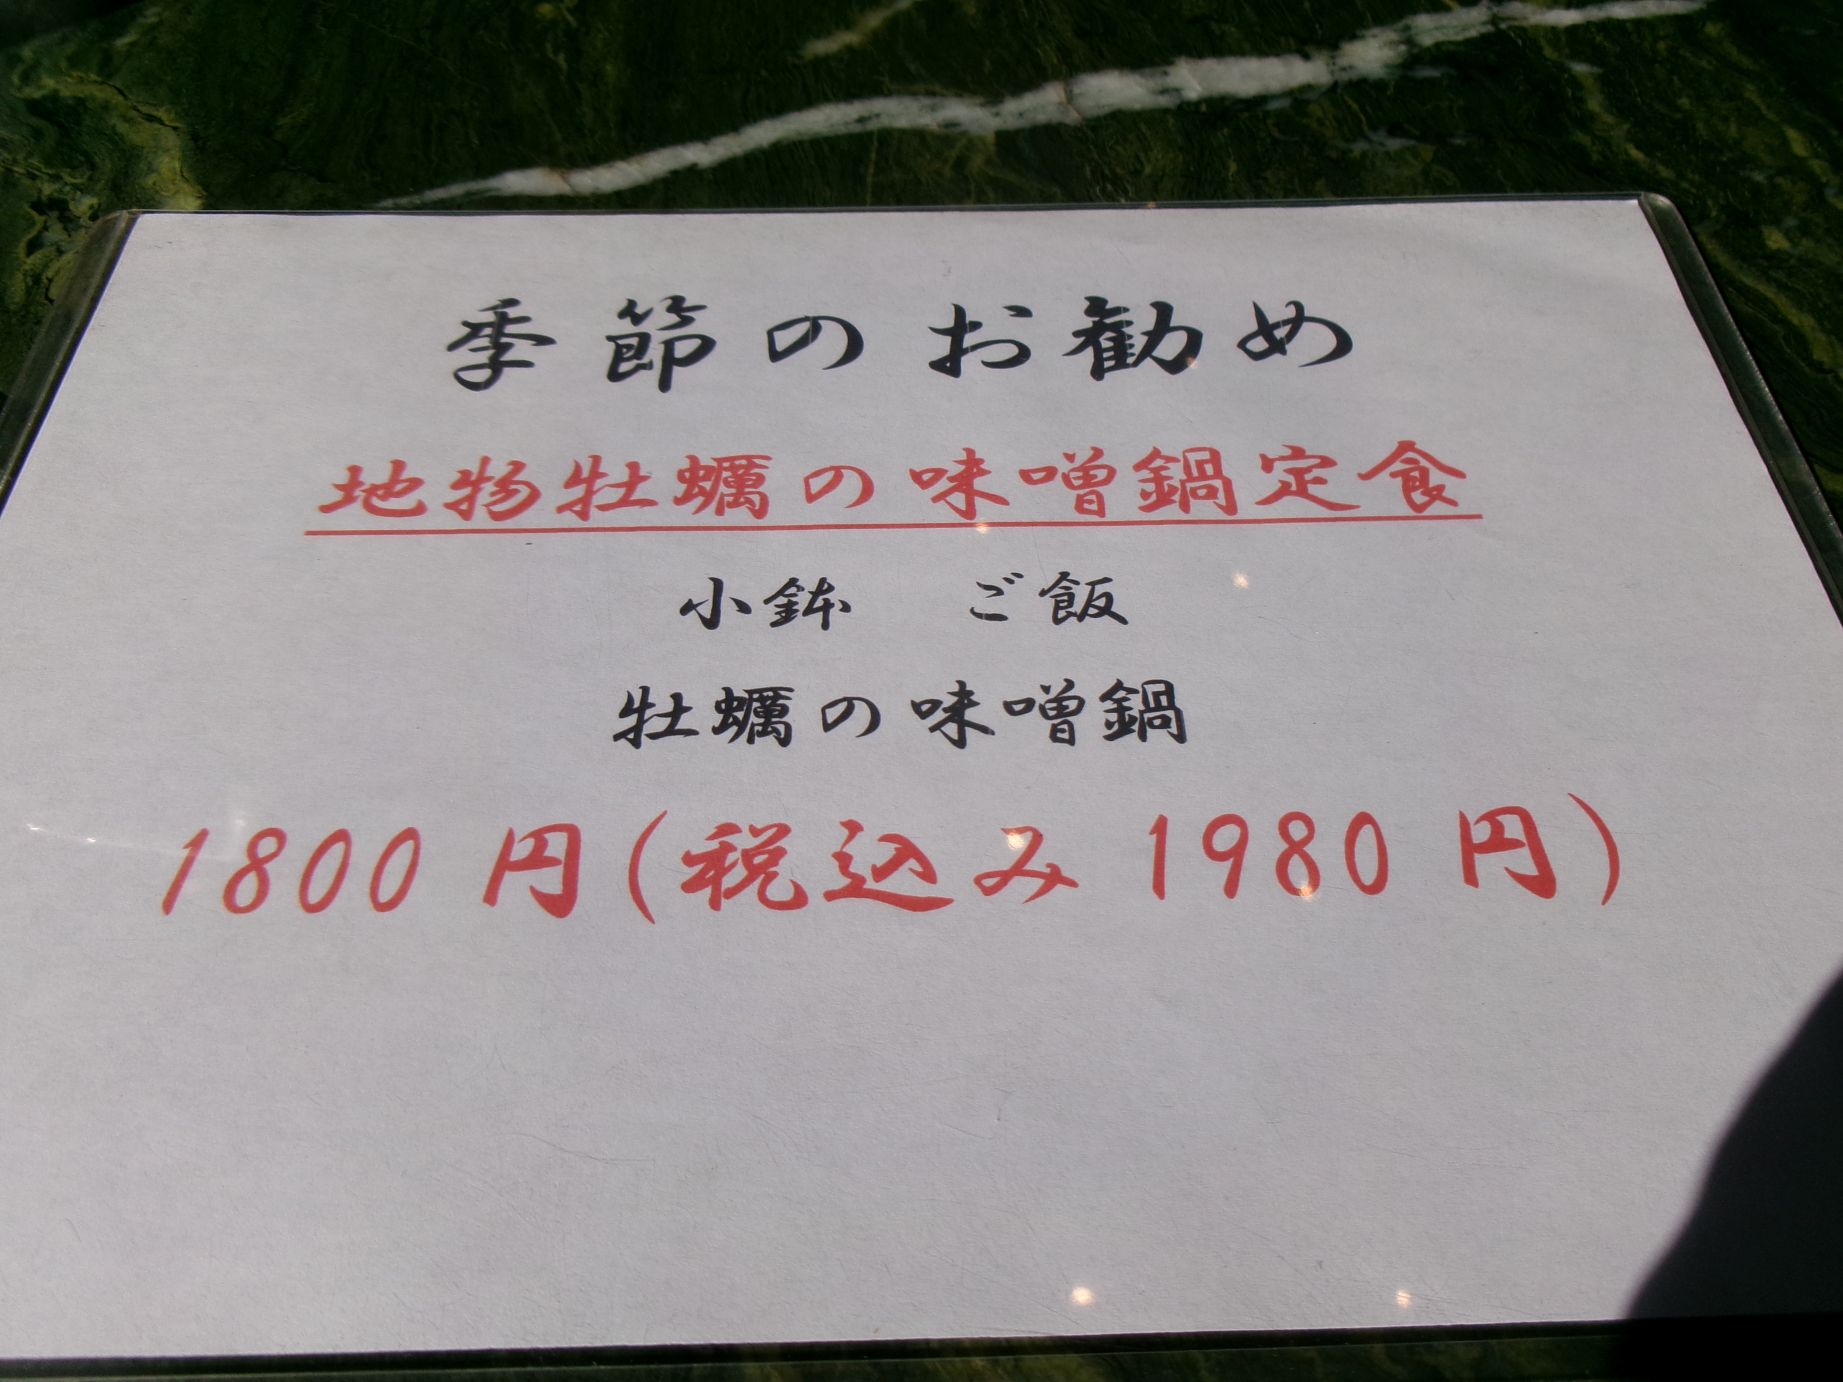 季節のお勧め
地物牡蠣の味噌鍋定食
小鉢　ご飯
牡蠣の味噌鍋
1800円(税込み1980円)